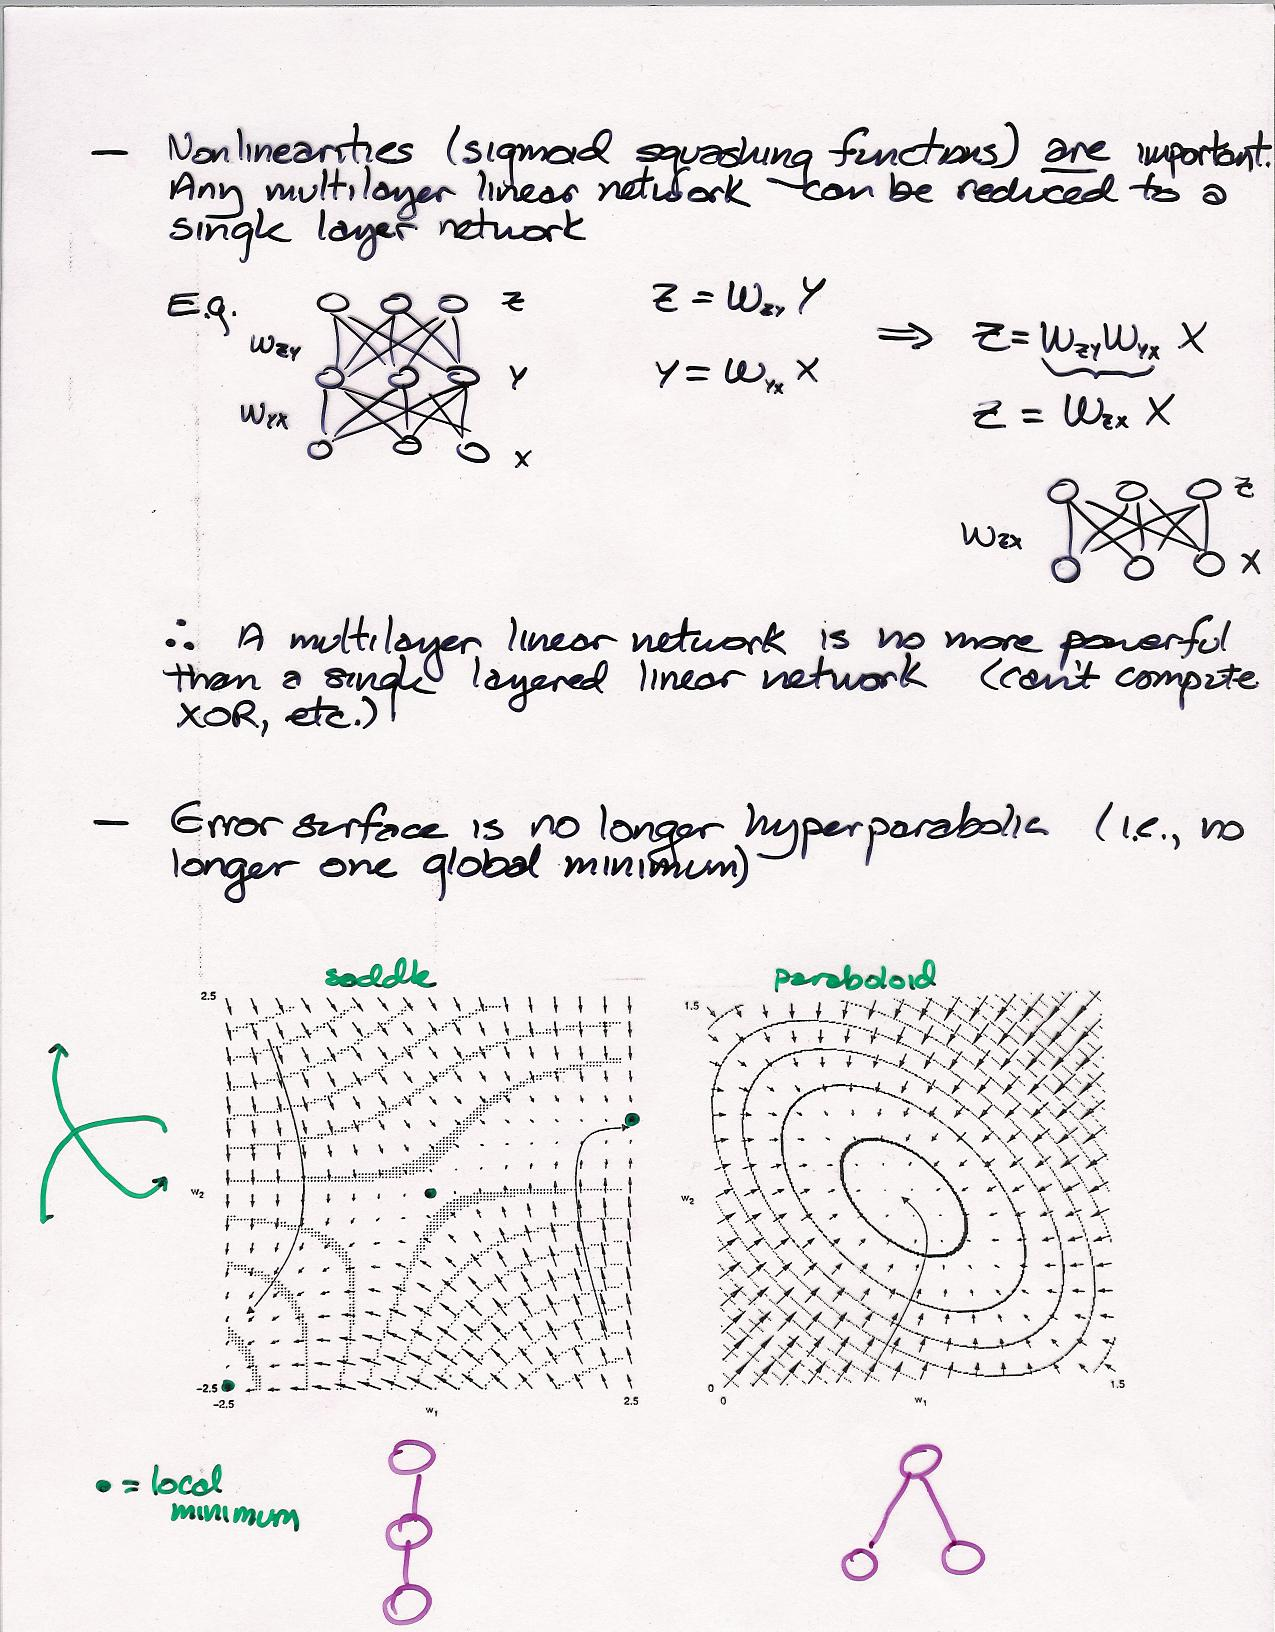 — Nonlinearities (sigmoid squashing functions) are important.
Any multilayer linear network can be reduced to a
single layer network
E.g.
Z
W_ZY
Y
W_YX
X
Z = W_ZY Y
Y = W_YX X
⇒ Z = W_ZY W_YX X
Z = W_ZX X
Z
W_ZX
X
∴ A multilayer linear network is no more powerful
than a single layered linear network (can't compute
XOR, etc.)
— Error surface is no longer hyperparabolic (i.e., no
longer one global minimum)
saddle
2.5
w₂
-2.5
-2.5
w₁
2.5
paraboloid
1.5
w₂
0
0
w₁
1.5
• = local
minimum